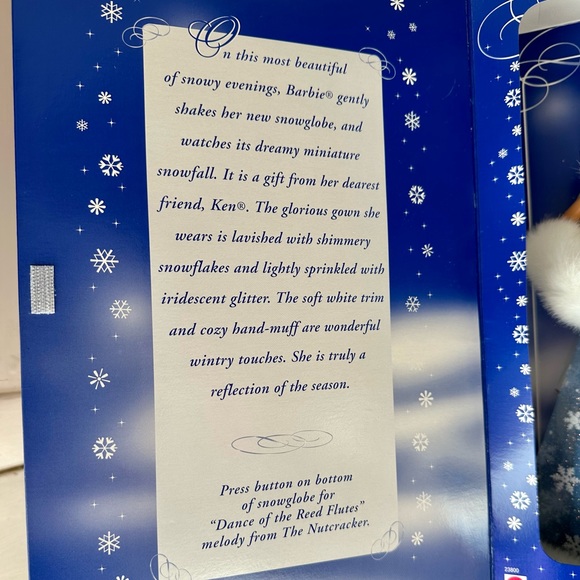 On this most beautiful
of snowy evenings, Barbie® gently
shakes her new snowglobe, and
watches its dreamy miniature
snowfall. It is a gift from her dearest
friend, Ken®. The glorious gown she
wears is lavished with shimmery
snowflakes and lightly sprinkled with
iridescent glitter. The soft white trim
and cozy hand-muff are wonderful
wintry touches. She is truly a
reflection of the season.
Press button on bottom
of snowglobe for
"Dance of the Reed Flutes"
melody from The Nutcracker.
23800